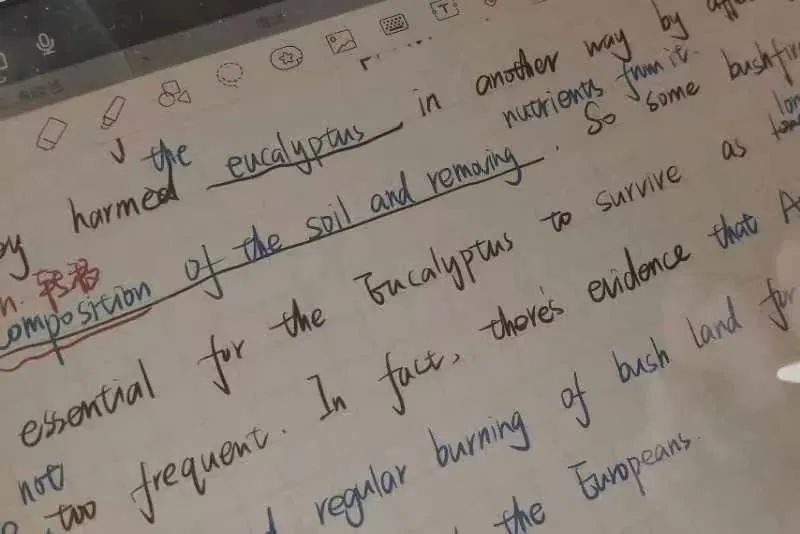 in another way by
the nutrients from it.
harmed eucalyptus. So some bushfir
omposition of the soil and removing
essential for the Eucalyptus to survive as lon
not too frequent. In fact, there's evidence that A
regular burning of bush land for
the Europeans.